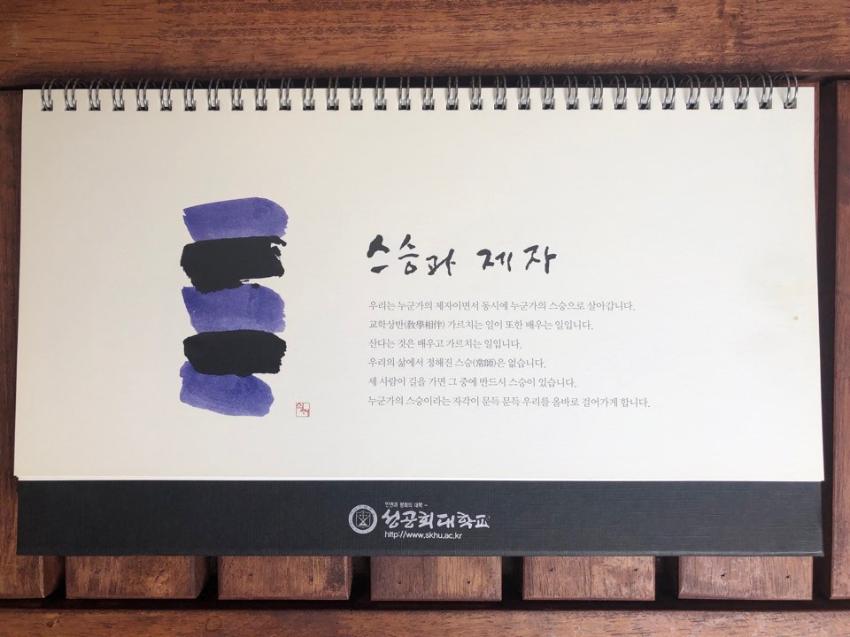 스승과 제자
우리는 누군가의 제자이면서 동시에 누군가의 스승으로 살아갑니다.
교학상반(敎學相伴) 가르치는 일이 또한 배우는 일입니다.
산다는 것은 배우고 가르치는 일입니다.
우리의 삶에서 정해진 스승(常師)은 없습니다.
세 사람이 길을 가면 그 중에 반드시 스승이 있습니다.
누군가의 스승이라는 자각이 문득 문득 우리를 올바로 걸어가게 합니다.
인권과 평화의 대학
성공회대학교
http://www.skhu.ac.kr